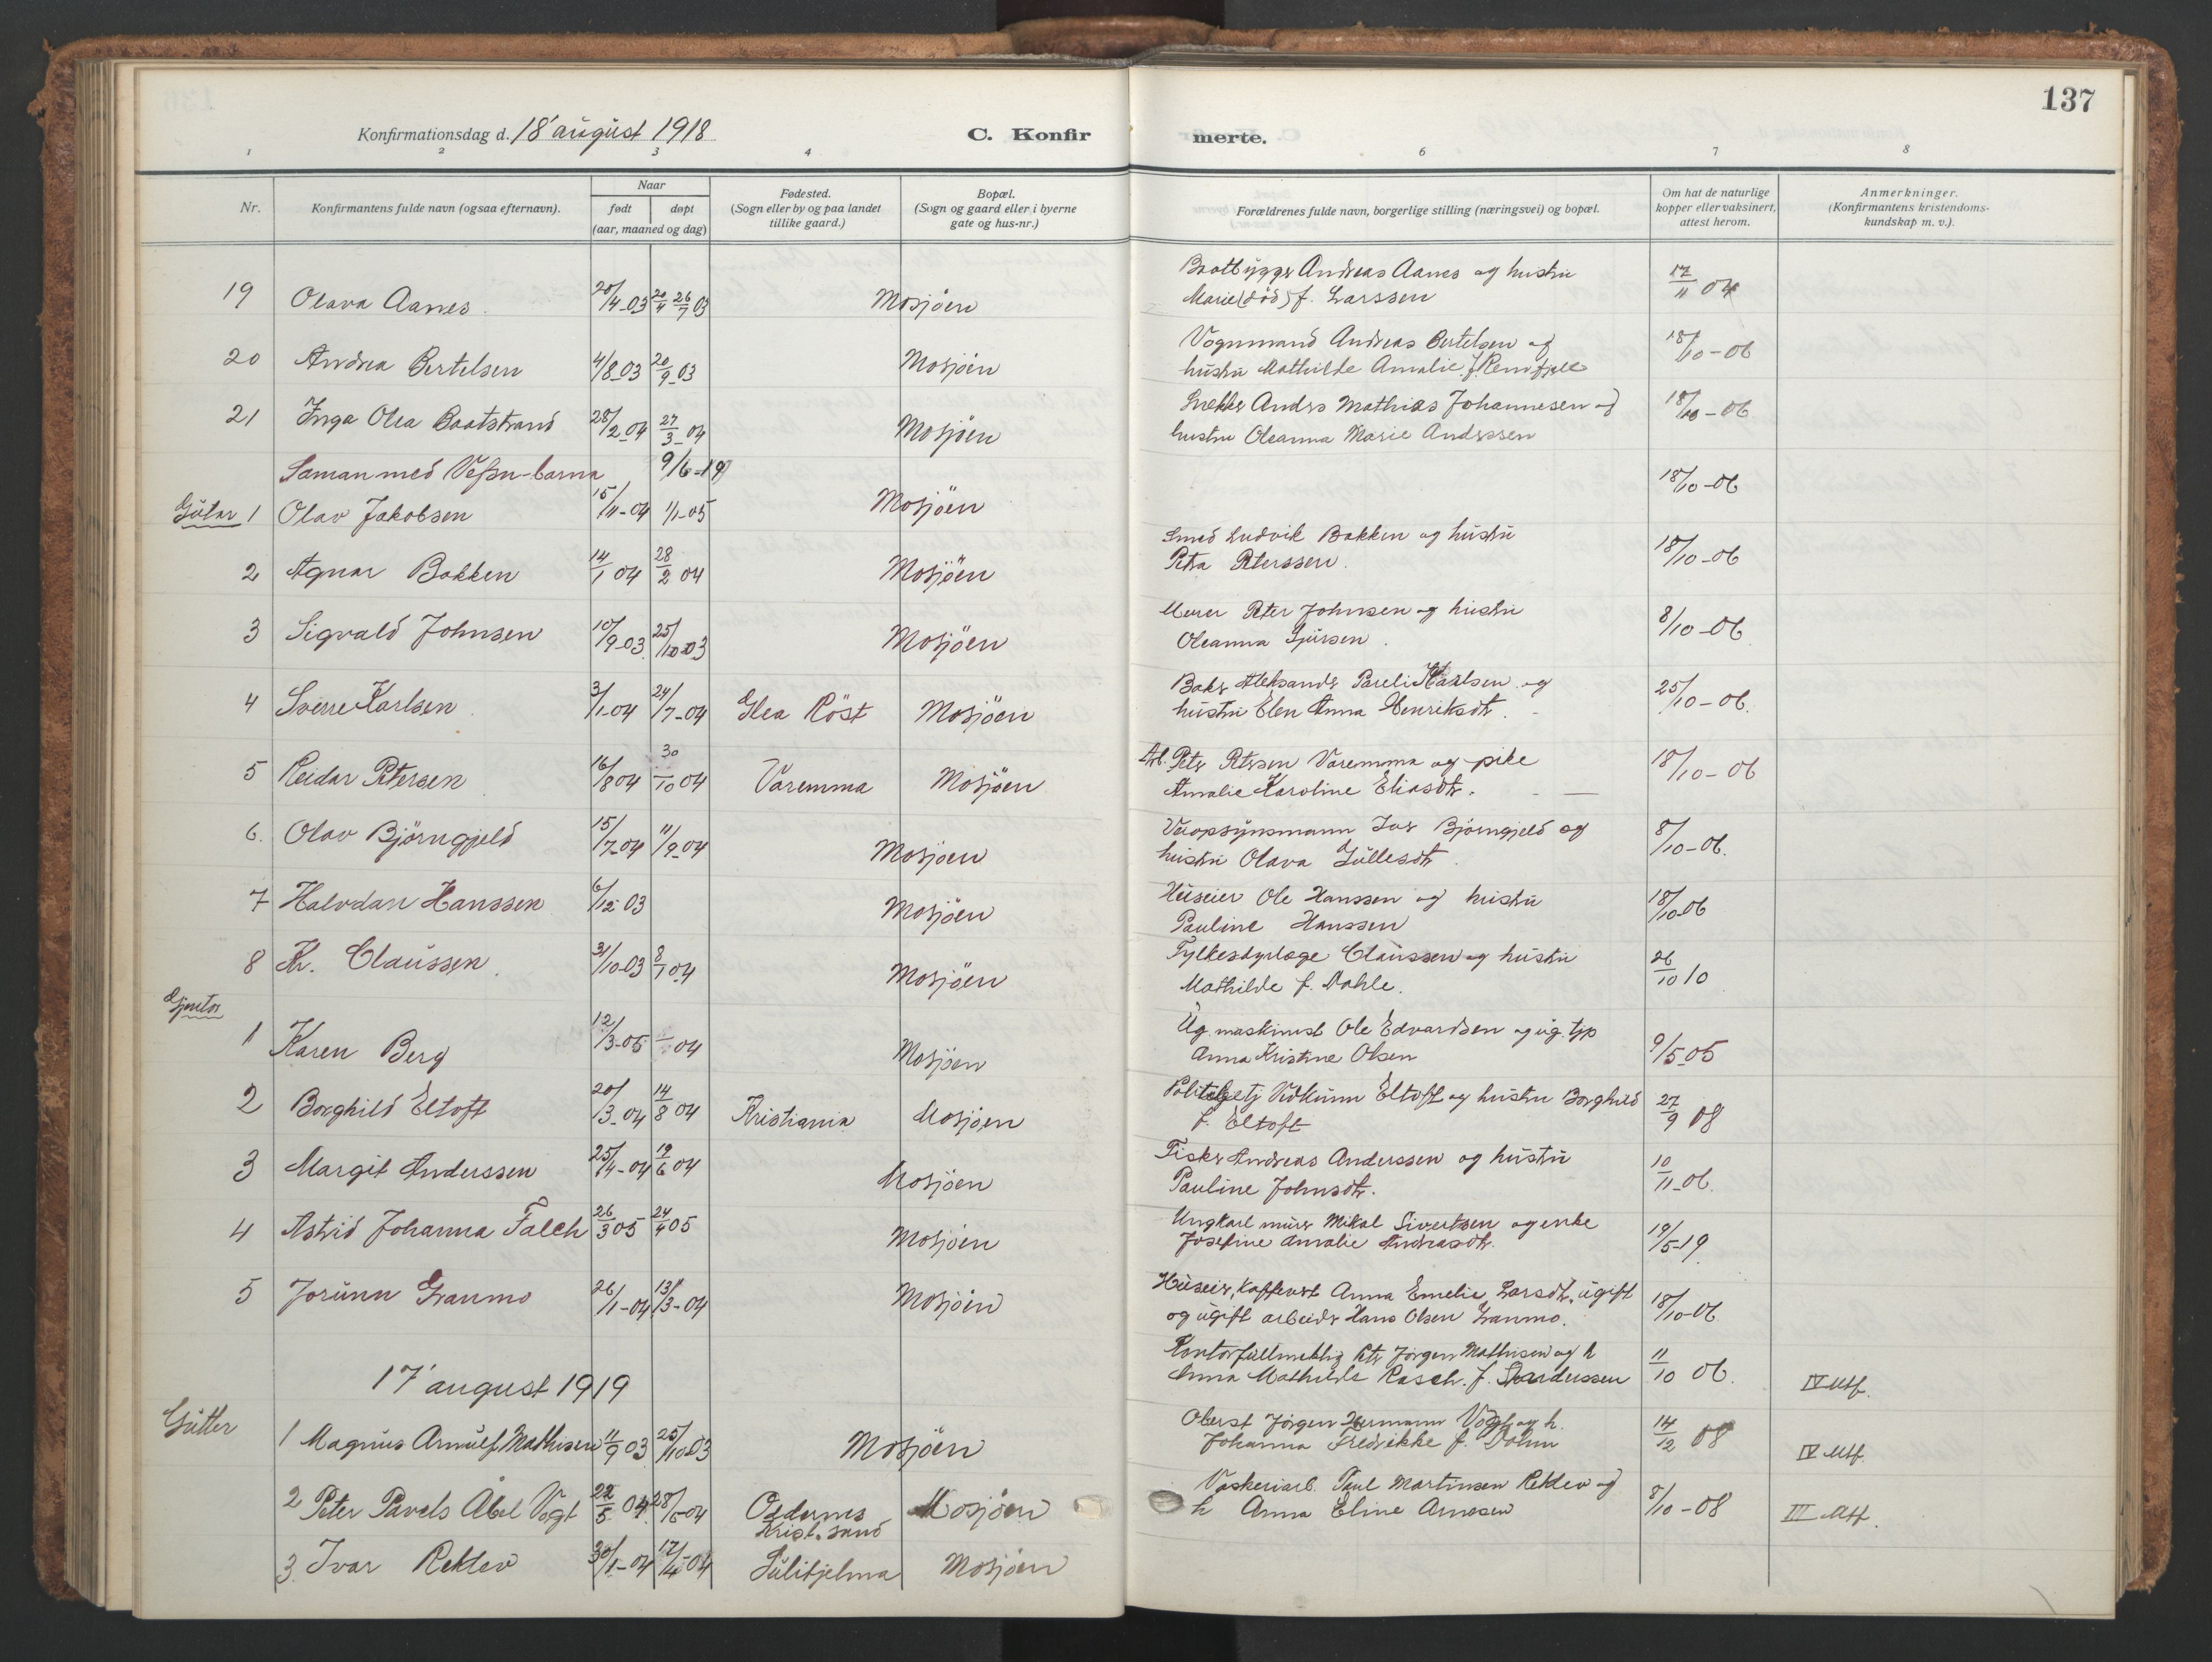 137
Konfirmationsdag d. 18' august 1918
C. Konfirmerte.
1 2 3 4 6 7 8
Nr.
Konfirmantens fulde navn (ogsaa efternavn).
Naar
født døpt
(aar, maaned og dag)
Fødested.
(Sogn eller by og paa landet
tillike gaard.)
Bopæl.
(Sogn og gaard eller i byerne
gate og hus-nr.)
Forældrenes fulde navn, borgerlige stilling (næringsvei) og bopæl.
Om hat de naturlige
kopper eller vaksinert,
attest herom.
Anmerkninger.
(Konfirmantens kristendoms-
kundskap m. v.).
19 Olava Aanes 20/4-03 26/7 03 Mosjöen Baatbygger Andreas Aanes og hustru
Marie (död) f. Larssen 17/11 04
20 Andrea Bertelsen 4/8-03 20/9-03 Mosjöen Vognmand Andreas Bertelsen og
hustru Mathilde Amalie f. Remfjell 18/10-06
21 Inga Olea Baatstrand 28/2-04 27/3-04 Mosjöen Snekker Anders Mathias Johannesen og
hustru Oleanna Marie Anderssen 18/10-06
Saman med Vefsn-barna 9/6-19
Gutar 1 Olav Jakobsen 15/11-04 1/1-05 Mosjöen 18/10-06
2 Agnar Bakken 14/1 04 28/2 04 Mosjöen Smed Ludvik Bakken og hustru
Petra Peterssen. 18/10-06
3 Sigvald Johnsen 10/9-03 25/10 03 Mosjöen Murer Peter Johnsen og hustru
Oleanna Sjursen. 8/10-06
4 Sverre Karlsen 3/1-04 24/7-04 Röst Mosjöen Baker Aleksander Pareli Karlsen og
hustru Elen Anna Henriksdtr. 25/10-06.
5 Reidar Petersen 16/8 04 30/10 04 Varemma Mosjöen Arb. Peter Petersen Varemma og pike
Amalie Karoline Eliasdtr. 18/10-06
6. Olav Björngjeld 15/7-04 11/9-04 Mosjöen Veiopsynsmann Ivar Björngjeld og
hustru Olava Gullesdtr. 8/10-06.
7 Halvdan Hanssen 6/12 03 Mosjöen Huseier Ole Hanssen og hustru
Pauline Hanssen 18/10-06
8 Kr. Claussen 31/10-03 8/1 04 Mosjöen Fylkesdyrlæge Claussen og hustru
Mathilde f. Dahle. 26/10 10
Gjentor
1 Karen Berg 12/3-05 04 Mosjöen Ug. maskinist Ole Edvardsen og ug.
Anna Kristine Olsen 9/5-05
2 Borghild Eltoft 20/3-04 14/8 04 Kristiania Mosjöen Vidkunn Eltoft og hustru Borghild
f. Eltoft 27/9 08
3 Margit Anderssen 25/4-04 19/6 04 Mosjöen Fisker Andreas Anderssen og hustru
Pauline Johnsdtr. 10/11-06.
4 Astrid Johanna Falch 26/3 05 24/4 05 Mosjöen Ungkarl murer Mikal Sivertsen og enke
Josefine Amalie Andreasdtr. 19/5-19
5 Jorunn Granmo 26/1-04 13/3-04 Mosjöen Huseier, kaffevert Anna Emelie Larsdtr. ugift
og ugift arbeider Hans Olsen Granmo. 18/10-06
17' august 1919
Gutter
1 Magnus Arnulf Mathisen 11/9 03 25/10 03 Mosjöen Kontorfullmektig Peter Jörgen Mathisen og h
Anna Mathilde Rasch. f. 11/10 06. IV Mtf.
2 Peter Pavels Abel Vogt 22/5 04 28/6-04 Oddernes
Krist.sand Mosjöen Oberst Jörgen Hermann Vogt og h.
Johanna Fredrikke f. Dohm 14/12 08 IV Mtf.
3. Ivar Rektev 30/1-04 17/4-04 Sulitjelma Mosjöen Vaskeriarb. Paul Martinsen Rektev og
h Anna Eline Arnesen 8/10-08 III Mtf.